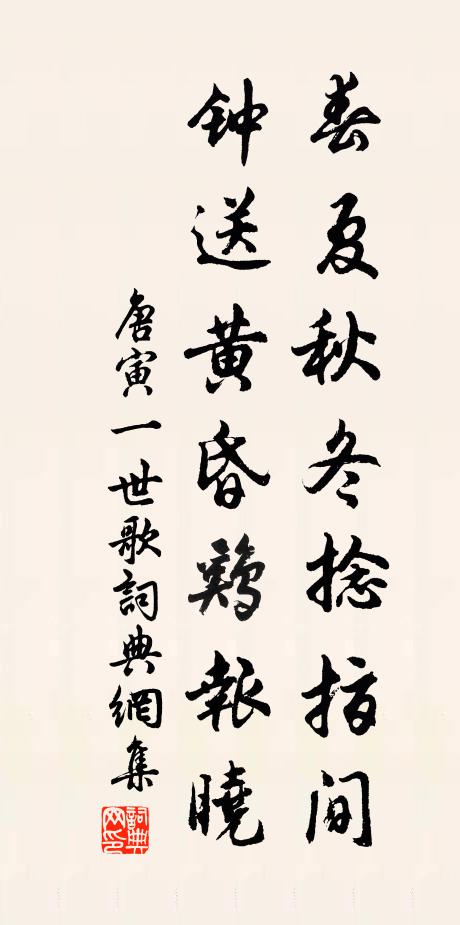 春夏秋冬捻指间
钟送黄昏鷄報曉
唐寅一世歌詞典網集
詞典网印